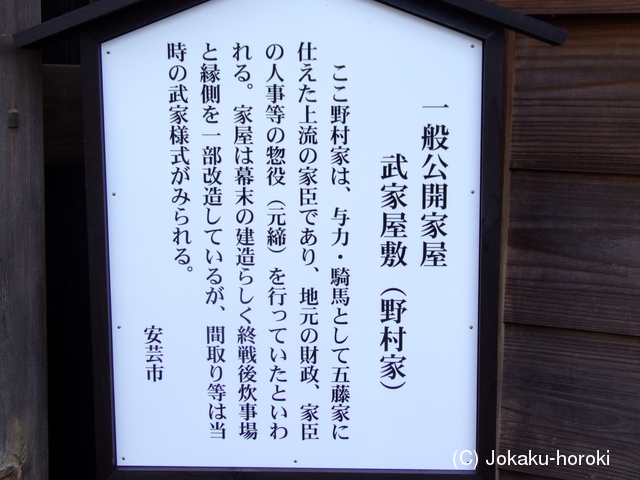 一般公開家屋
武家屋敷（野村家）
ここ野村家は、与力・騎馬として五藤家に
仕えた上流の家臣であり、地元の財政、家臣
の人事等の惣役（元締）を行っていたといわ
れる。家屋は幕末の建造らしく終戦後炊事場
と縁側を一部改造しているが、間取り等は当
時の武家様式がみられる。
安芸市
(C) Jokaku-horoki